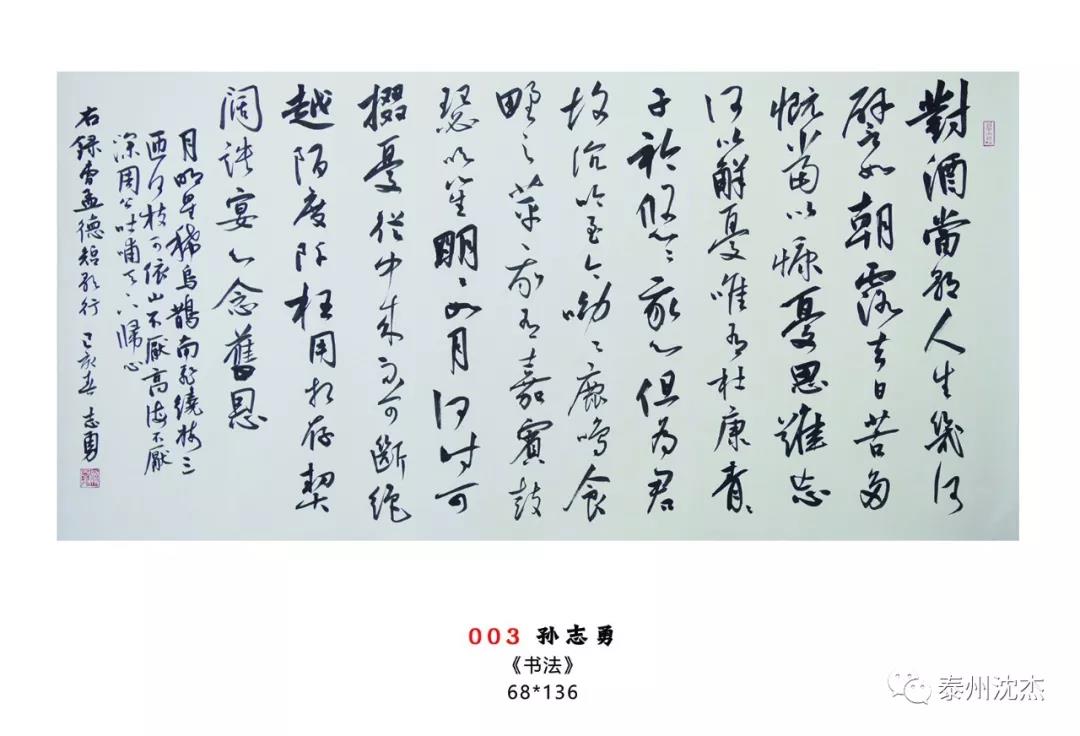 對酒當歌人生幾何
譬如朝露去日苦多
慨當以慷憂思難忘
何以解憂唯有杜康青〻
子衿悠〻我心但為君
故沉吟至今呦〻鹿鳴食
野之苹我有嘉賓鼓
瑟吹笙明〻如月何時可
掇憂從中來不可斷絕
越陌度阡枉用相存契
闊談宴心念舊恩
月明星稀烏鵲南飛繞樹三
匝何枝可依山不厭高海不厭
深周公吐哺天下歸心
右錄曹孟德短歌行 己亥春 志勇
003 孙志勇
《书法》
68*136
泰州沈杰